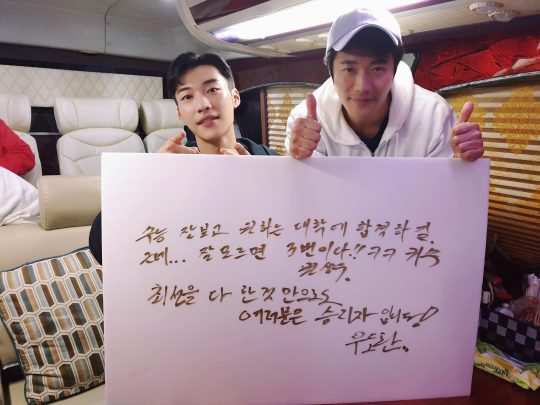 수능 잘보고 원하는 대학에 합격하길.
근데... 잘 모르면 3번이다!! ㅋㅋ
최선을 다 한것 만으로도
여러분은 승리자 입니당!
우도환.